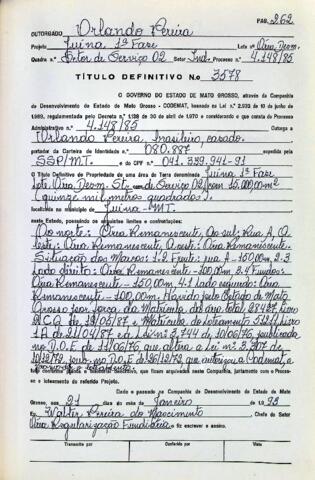 PAG. 262
OUTORGADO Orlando Pereira
Projeto Juína 1ª Fase Lote nº Área Desm.
Quadra n.º Setor de Serviço 02 Ind. Processo n.º 4.148/85
TÍTULO DEFINITIVO N.o 3578
O GOVERNO DO ESTADO DE MATO GROSSO, através da Companhia
de Desenvolvimento do Estado de Mato Grosso - CODEMAT, baseado na Lei n.º 2.933 de 10 de junho
1969, regulamentada pelo Decreto n.º 1138 de 30 de abril de 1970 e considerando o que consta do Processo
Administrativo n.º 4.148/85 Outorga a
Orlando Pereira, brasileiro, casado,
portador da Carteira de Identidade n.º 080.887 expedida pela
SSP/MT. e do CPF n.º 041.359.941-91
O Título Definitivo de Propriedade de uma área de Terra denominada Juína 1ª Fase
Lote Área Desm. Setor de Serviço 02, com 15.000,00 m²
(quinze mil metros quadrados).
situada no município de Juína-MT.
neste Estado, possuindo os seguintes limites e confrontações:
Ao norte: Área Remanescente, Ao sul: Rua A, O
leste: Área Remanescente, O oeste: Área Remanescente.
Situação dos Marcos: 1.2 Frente: rua A - 150,00m, 2.3
Lado direito: Área Remanescente - 100,00m, 3.4 Fundos:
Área Remanescente - 150,00m, 4.1 Lado esquerdo: Área
Remanescente - 100,00m. Havido pelo Estado de Mato
Grosso por força da Matrícula da área total 28427, Livro
2 C.Q. de 19/05/87, e Matrícula do Loteamento
1A de 21/04/87, ed. Lei nº 3.744 de 10/06/76, publicada
no D.O.E de 11/06/76, que altera a Lei nº 3.307 de
18/12/72, publ. no D.O.E 26/12/72, que autorizou a Codemat, a
Dado e passado na Companhia de Desenvolvimento do Estado de Mato
Grosso, aos 21 dias do mês de Janeiro de 1.993
Eu, Walter Pereira do Nascimento Chefe do Setor
Área Regularização Fundiária fiz escrever e assino.
Transcrito por Conferido por Visto